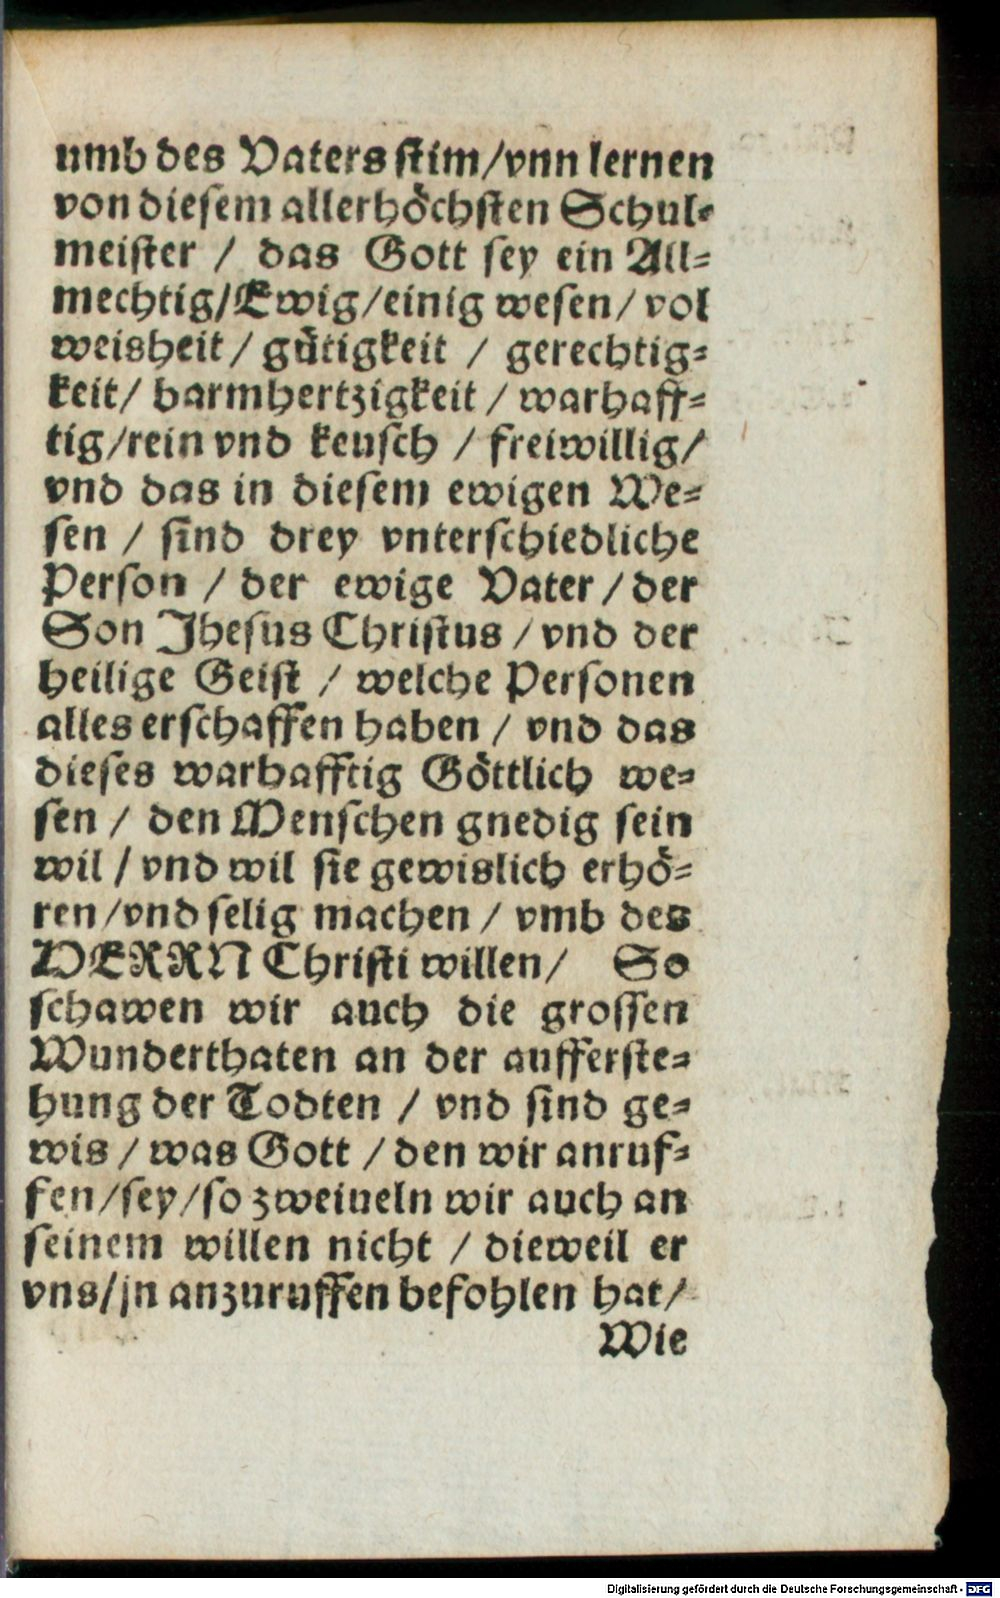 umb des Vaters stim/vnn lernen
von diesem allerhöchsten Schul-
meister / das Gott sey ein All-
mechtig/Ewig/einig wesen/ vol
weisheit / gütigkeit / gerechtig-
keit/ barmhertzigkeit / warhaff-
tig/rein vnd keusch / freiwillig/
vnd das in diesem ewigen We-
sen / sind drey vnterschiedliche
Person / der ewige Vater / der
Son Jhesus Christus / vnd der
heilige Geist / welche Personen
alles erschaffen haben / vnd das
dieses warhafftig Göttlich we-
sen / den Menschen gnedig sein
wil / vnd wil sie gewislich erhö-
ren/vnd selig machen / vmb des
HERRN Christi willen/ So
schawen wir auch die grossen
Wunderthaten an der aufferste-
hung der Todten / vnd sind ge-
wis / was Gott / den wir anruf-
fen/sey/so zweiueln wir auch an
seinem willen nicht / dieweil er
vns/jn anzuruffen befohlen hat/
Wie
Digitalisierung gefördert durch die Deutsche Forschungsgemeinschaft - DFG